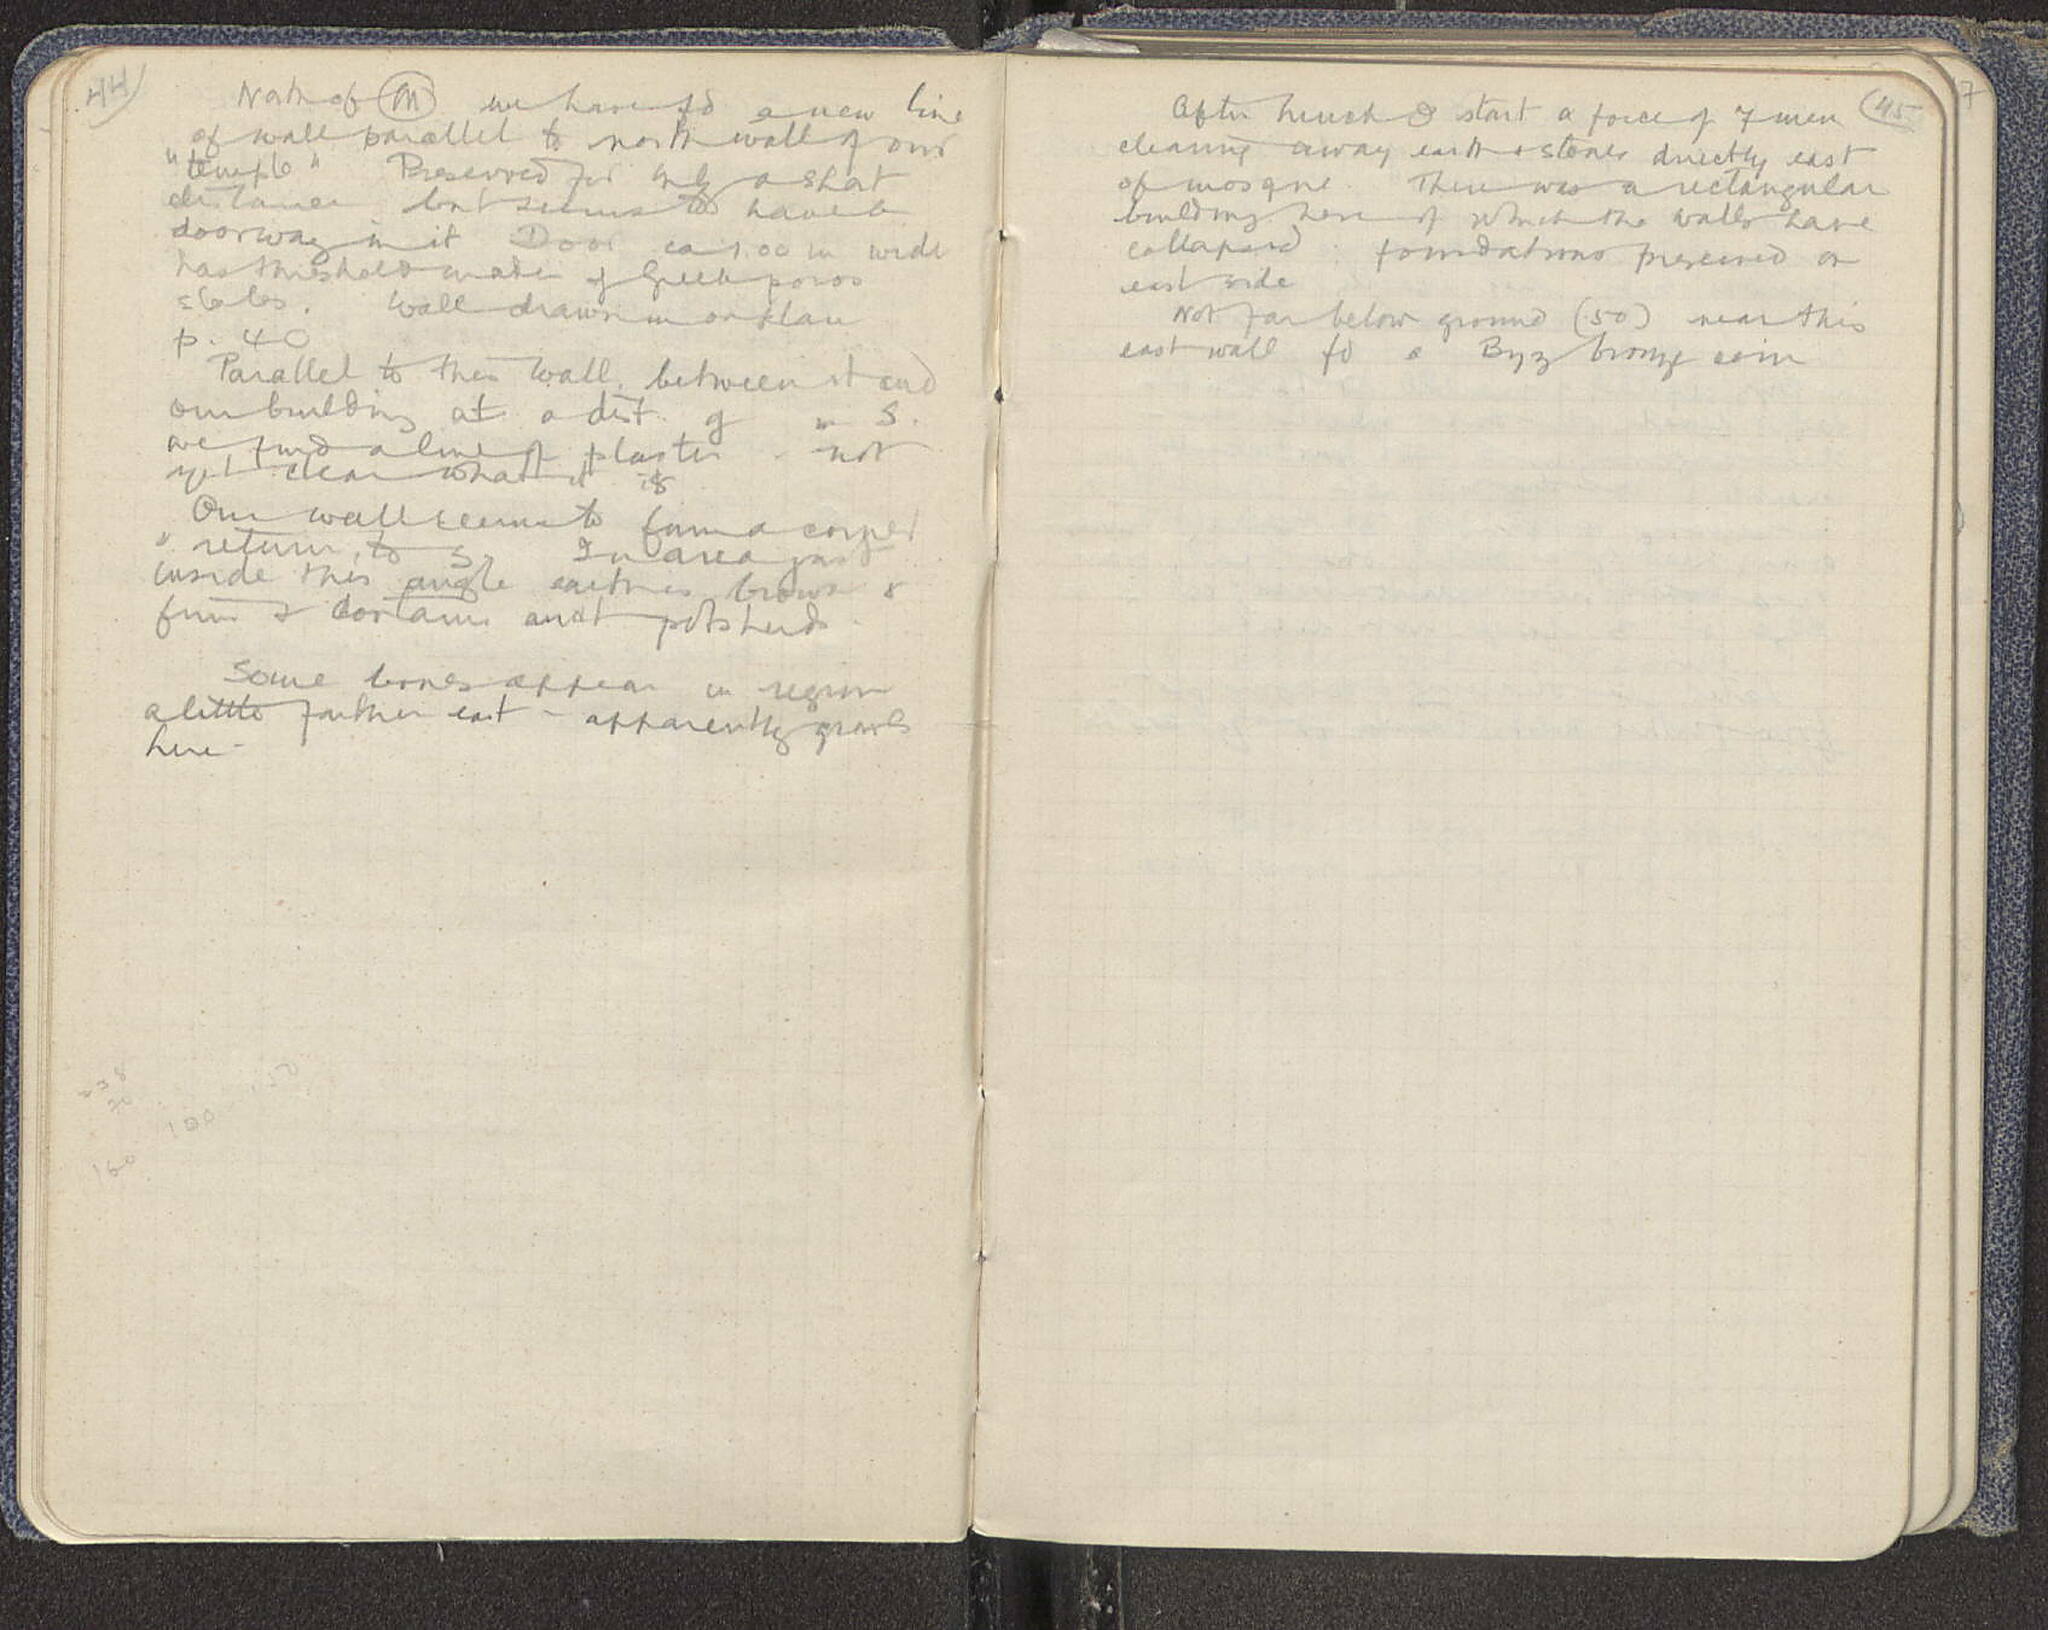 44
North of M we have fd a new line
of wall parallel to north wall of our
"temple" Preserved for only a short
distance but seems to have a
doorway in it Door ca 1.00 m wide
has threshold made of Greek poros
slabs. Wall drawn in on plan
p. 40
Parallel to this wall, between it and
our building at a dist. of m S.
we find a line of plaster - not
yet clear what it is
Our wall seems to form a corner
& return to S. In area just
inside this angle earth is brown &
firm & contains anct potsherds.
Some bones appear in region
a little farther east - apparently graves
here -
150
100
160
45
After lunch I start a force of 7 men
clearing away earth & stones directly east
of mosque. There was a rectangular
building here of which the walls have
collapsed: foundations preserved on
east side
Not far below ground (.50) near this
east wall fd a Byz bronze coin
7